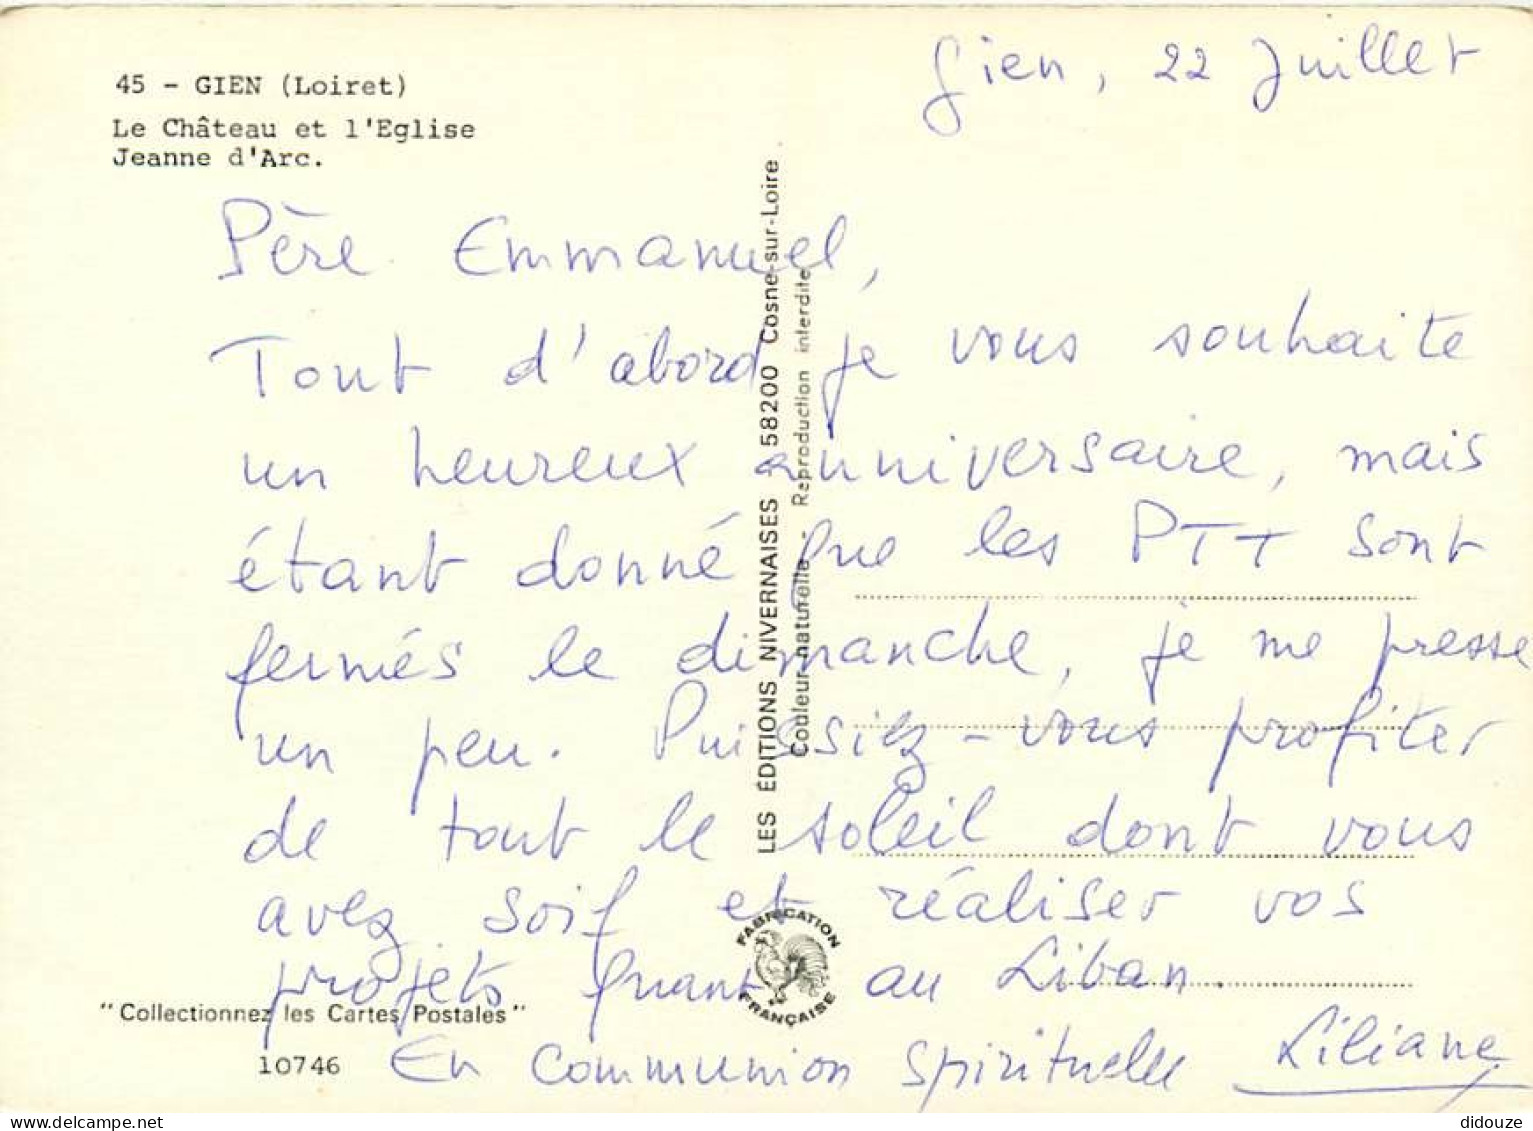 45 - GIEN (Loiret)
Le Château et l'Eglise
Jeanne d'Arc.
Gien, 22 Juillet
Père Emmanuel,
Tout d'abord je vous souhaite
un heureux anniversaire, mais
étant donné que les PTT sont
fermés le dimanche, je me presse
un peu. Puissiez-vous profiter
de tout le soleil dont vous
avez soif et réaliser vos
projets quant au Liban.
En communion spirituelle Liliane
LES ÉDITIONS NIVERNAISES 58200 Cosne-sur-Loire
Couleur naturelle - Reproduction interdite
FABRICATION FRANÇAISE
"Collectionnez les Cartes Postales"
10746
didouze